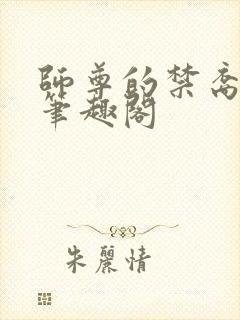 師尊的禁脔
筆趣閣
朱麗情